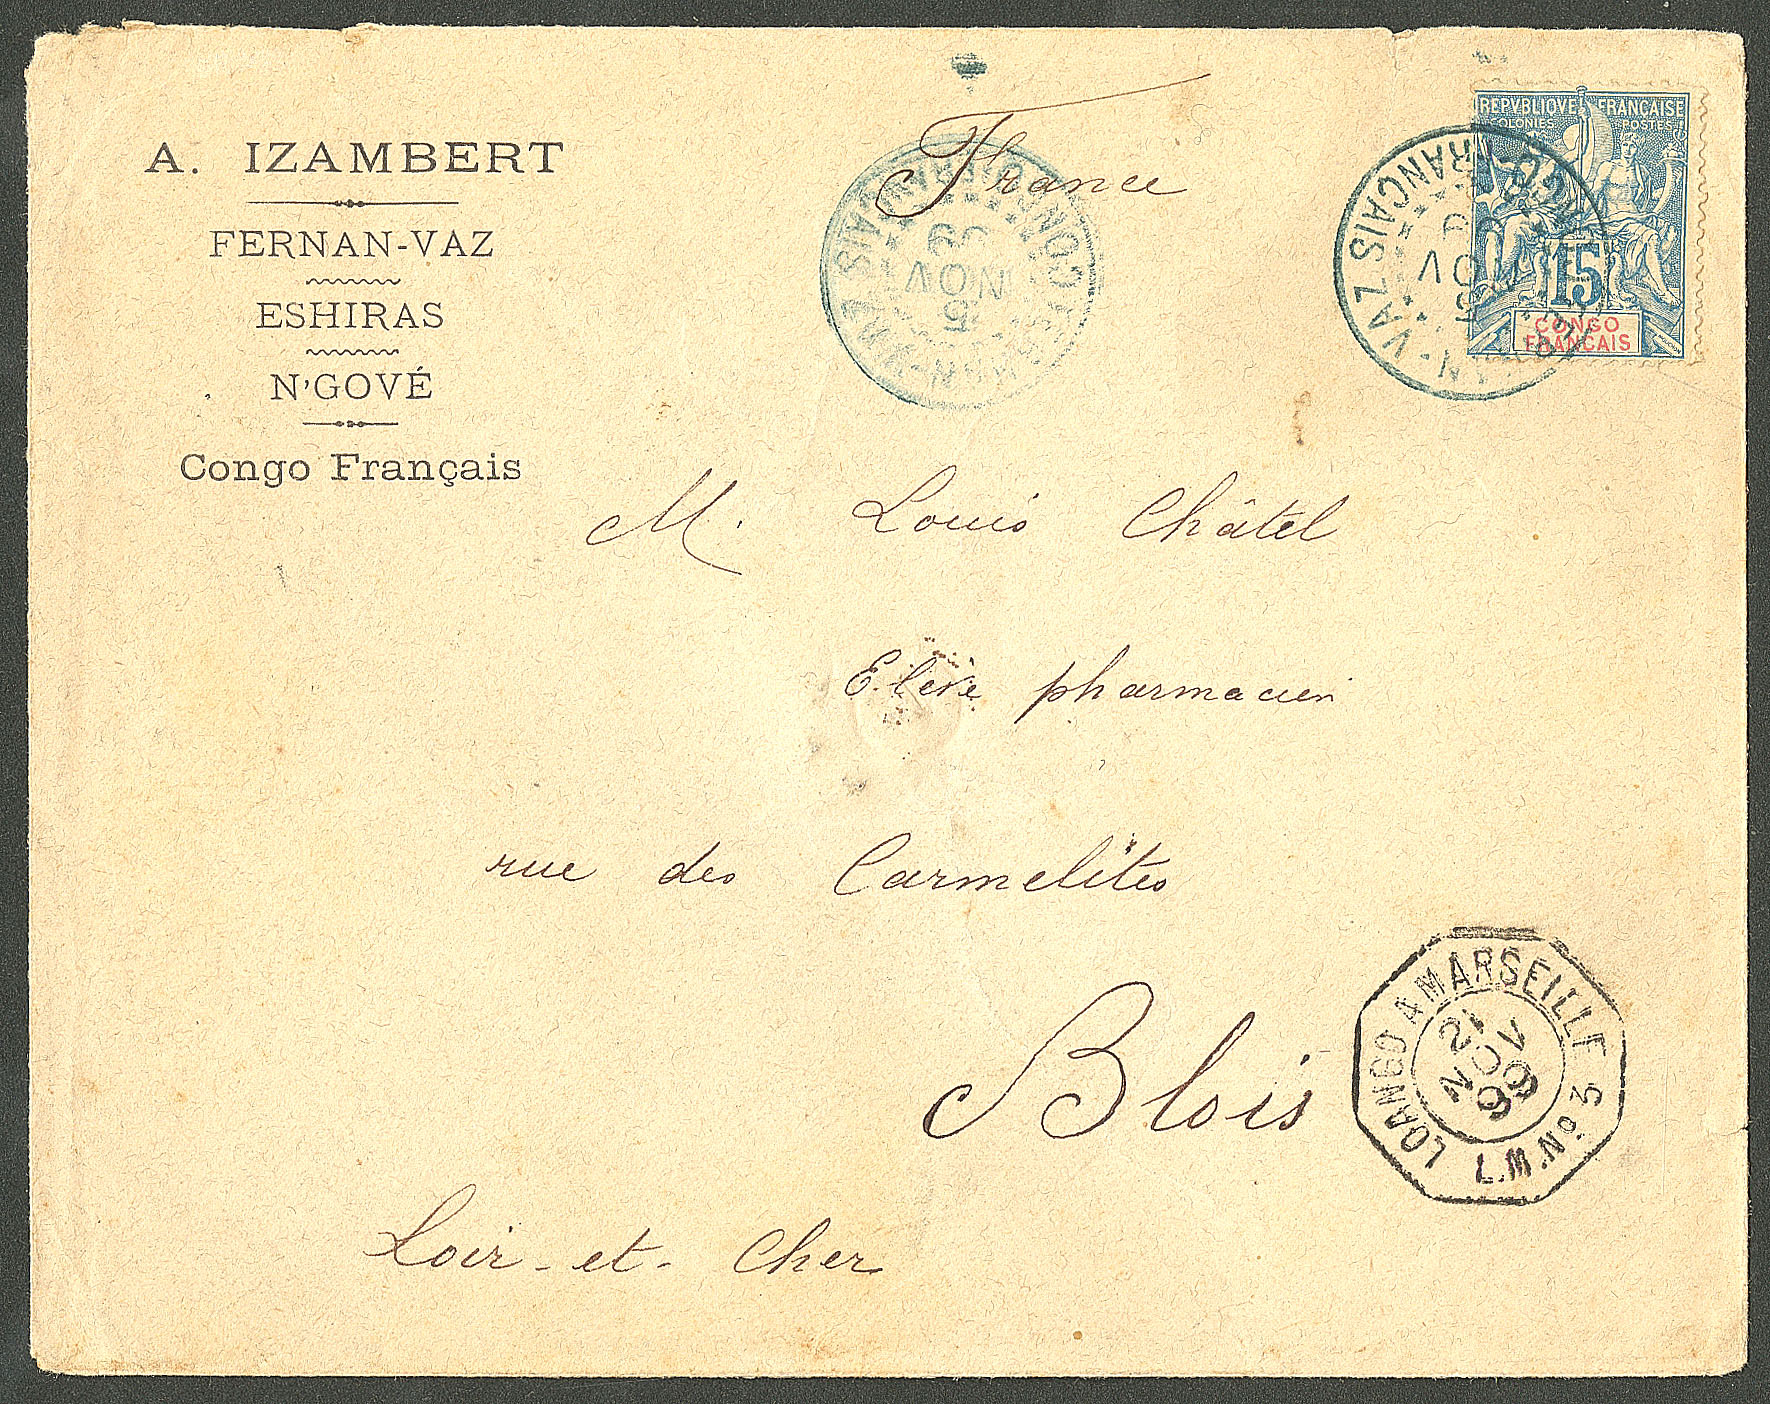 A. IZAMBERT
FERNAN-VAZ
ESHIRAS
N'GOVÉ
Congo Français
France
CONGO FRANÇAIS
FERNAN-VAZ
5
NOV
99
REPVBLIQVE FRANÇAISE
COLONIES POSTES
15
CONGO
FRANÇAIS
FRANÇAIS
N-VAZ
NOV
M. Louis Châtel
Elève pharmacien
rue des Carmelites
Blois
Loir-et-Cher
LOANGO A MARSEILLE
21
NOV
99
L.N. No 3